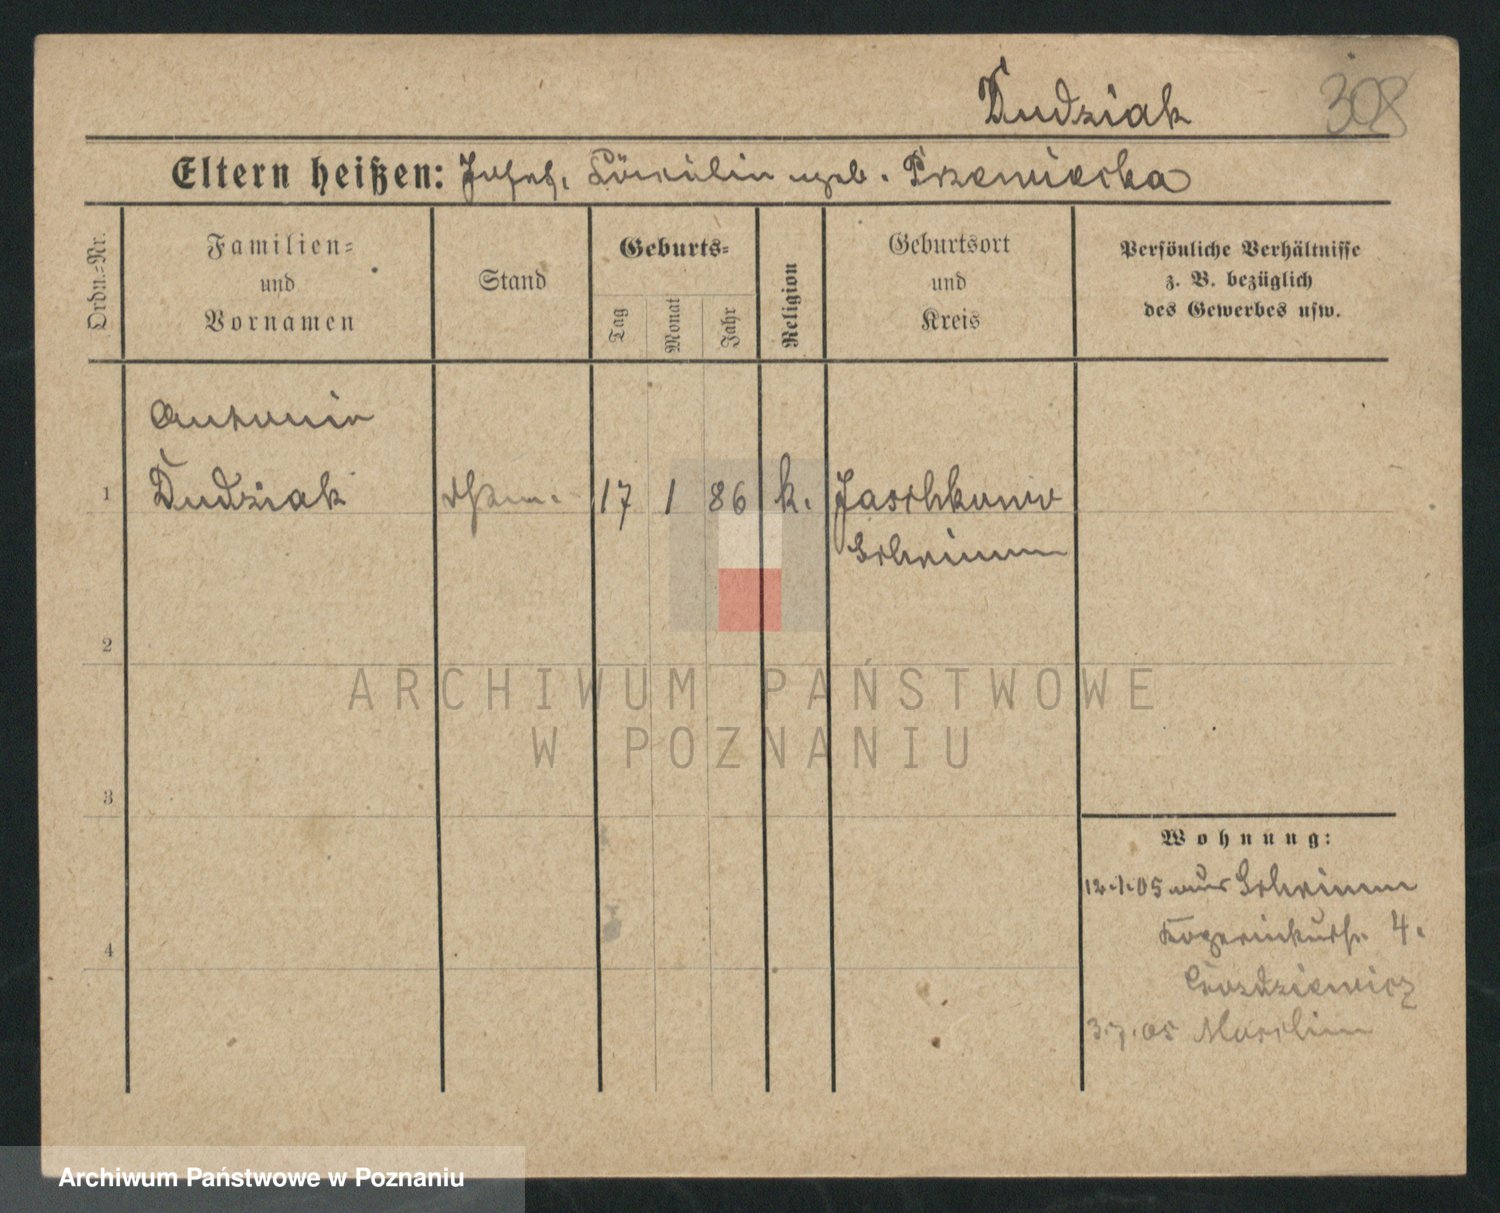 Dudziak 308
Eltern heißen: Josef, geb. Przewiecka
Ordn.-Nr.
Familien-
und
Vornamen
Stand
Geburts-
Tag
Monat
Jahr
Religion
Geburtsort
und
Kreis
Persönliche Verhältnisse
z. B. bezüglich
des Gewerbes usw.
Antonie
1 Dudziak 17 1 86 k. Jaschkowo
Schrimm
2
ARCHIWUM PAŃSTWOWE
W POZNANIU
3
Wohnung:
12.1.05 aus Schrimm
4.
4
3.7.05
Archiwum Państwowe w Poznaniu